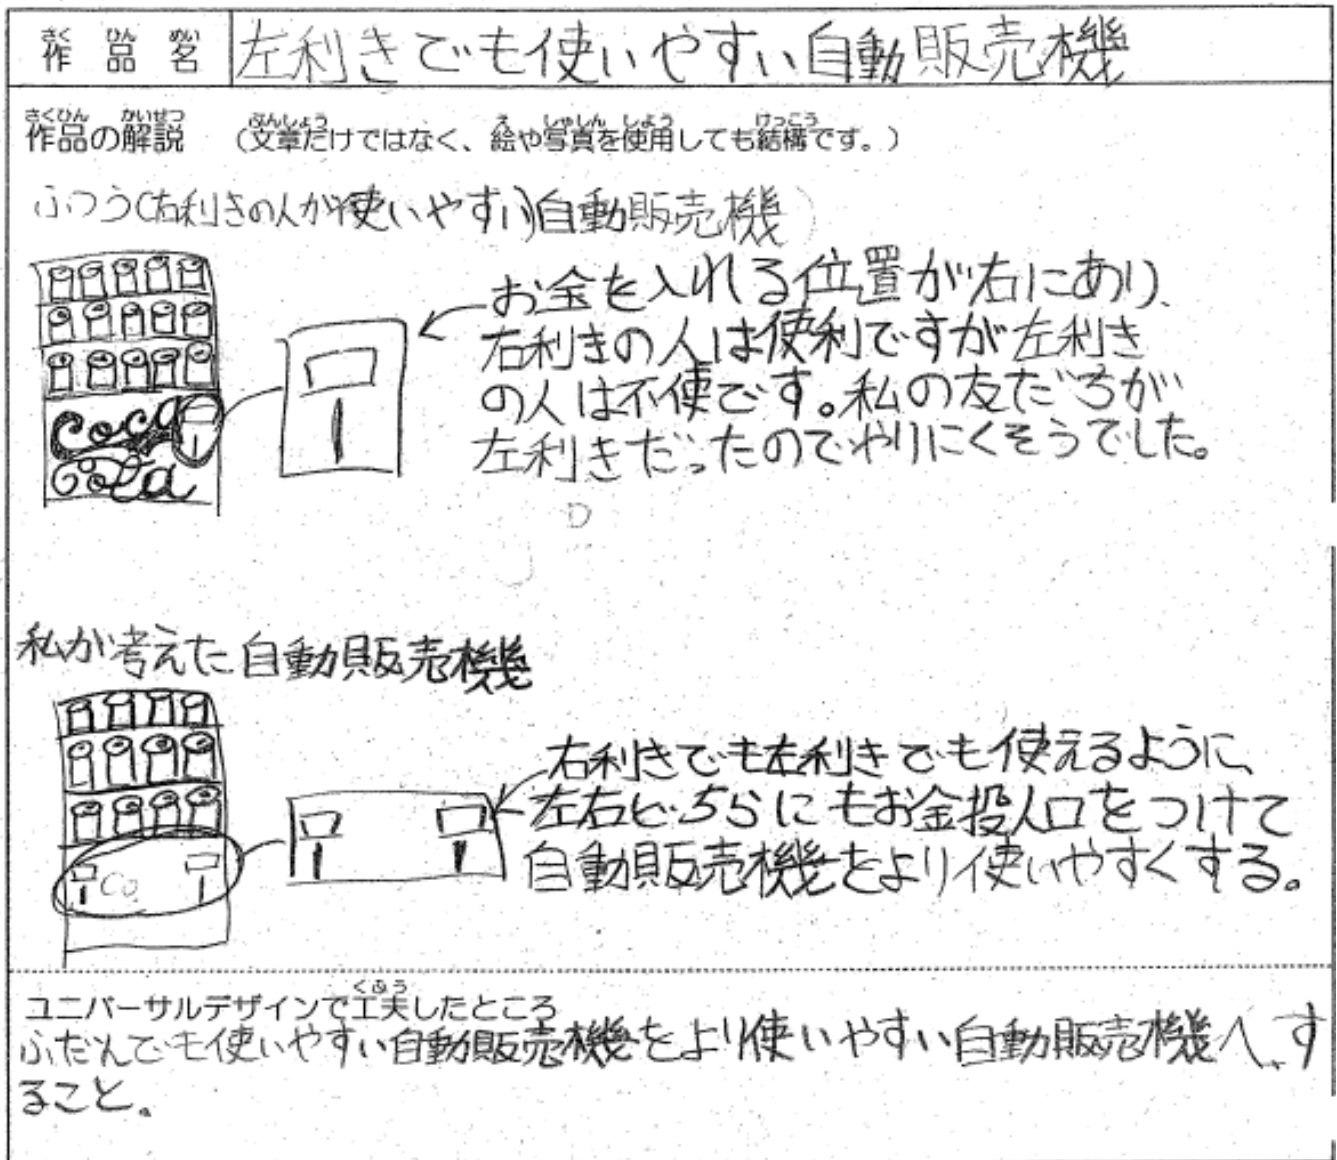 作品名 左利きでも使いやすい自動販売機
作品の解説 （文章だけではなく、絵や写真を使用しても結構です。）
ふつう(右利きの人が使いやすい)自動販売機
お金を入れる位置が右にあり、
右利きの人は便利ですが左利き
の人は不便です。私の友だちが
左利きだったのでやりにくそうでした。
Coca
Cola
私が考えた自動販売機
右利きでも左利きでも使えるように、
左右どちらにもお金投入口をつけて
自動販売機をより使いやすくする。
Co
ユニバーサルデザインで工夫したところ
ふだんでも使いやすい自動販売機をより使いやすい自動販売機へす
ること。